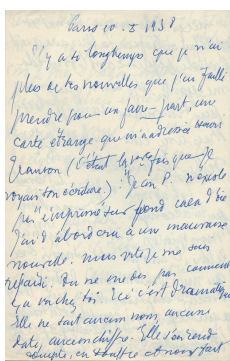 Paris 10. I 1938
Il y a si longtemps que je n'ai
plus de tes nouvelles que j'ai failli
prendre pour un faire-part, une
carte étrange que m'adressa
(c'était la 1ère fois que je
voyais son écriture). "Jean P. n'existe
pas" imprimé sur fond caca d'oie
J'ai d'abord cru à une mauvaise
nouvelle. mais vite je me suis
Tu ne me dis pas comment
ça va chez toi. Ici c'est dramatique
Elle ne sait aucun nom, aucune
date, aucun chiffre. Elle s'en rend
compte, en souffre et nous fait